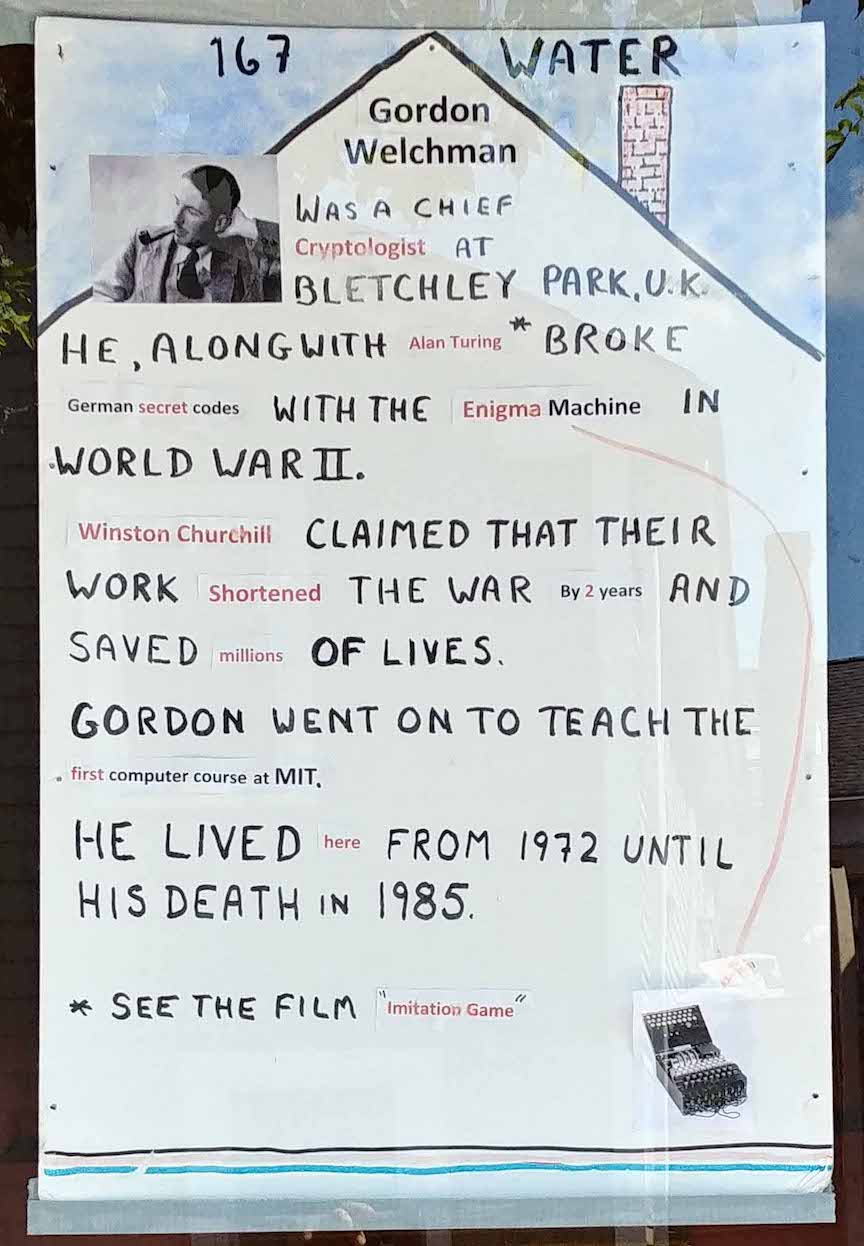 167 WATER
Gordon
Welchman
WAS A CHIEF
Cryptologist AT
BLETCHLEY PARK, U.K.
HE, ALONG WITH Alan Turing * BROKE
German secret codes WITH THE Enigma Machine IN
WORLD WAR II.
Winston Churchill CLAIMED THAT THEIR
WORK Shortened THE WAR By 2 years AND
SAVED millions OF LIVES.
GORDON WENT ON TO TEACH THE
first computer course at MIT.
HE LIVED here FROM 1972 UNTIL
HIS DEATH IN 1985.
* SEE THE FILM "Imitation Game"